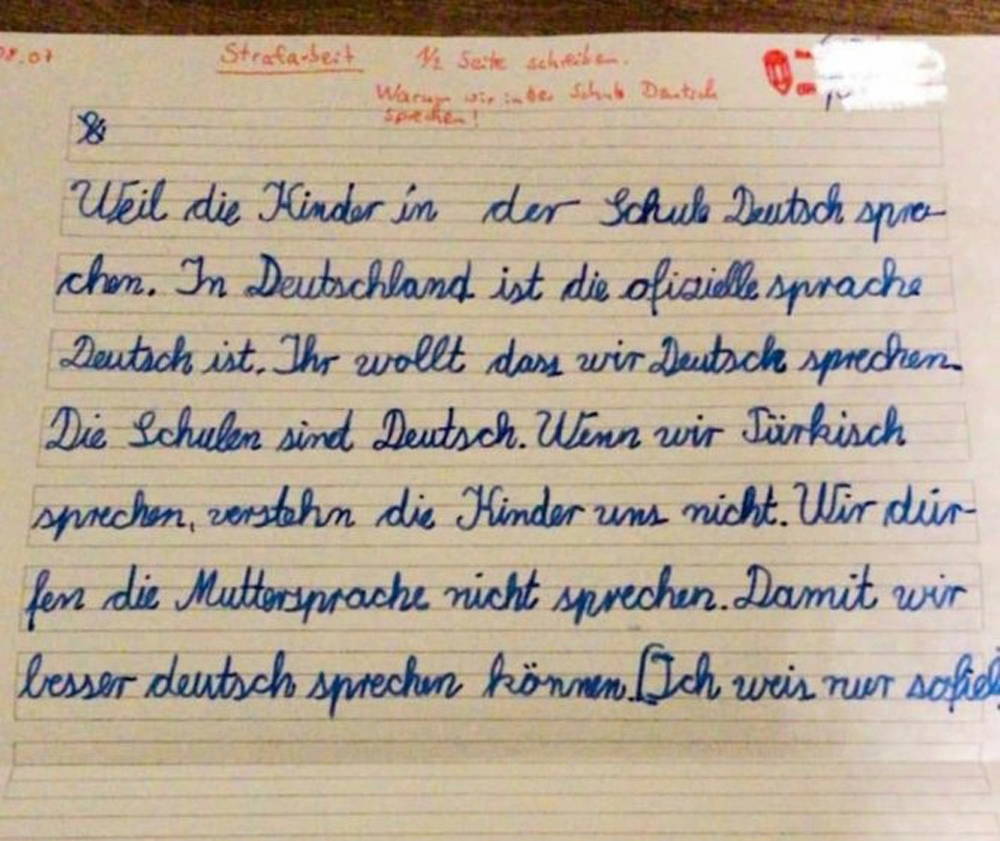 08.07 Strafarbeit 1/2 Seite schreiben.
Warum wir in der Schule Deutsch
sprechen!
Weil die Kinder in der Schule Deutsch spre-
chen. In Deutschland ist die ofizielle sprache
Deutsch ist. Ihr wollt dass wir Deutsch sprechen.
Die Schulen sind Deutsch. Wenn wir Türkisch
sprechen, verstehn die Kinder uns nicht. Wir dür-
fen die Muttersprache nicht sprechen. Damit wir
besser deutsch sprechen können. [Ich weis nur sofiel]